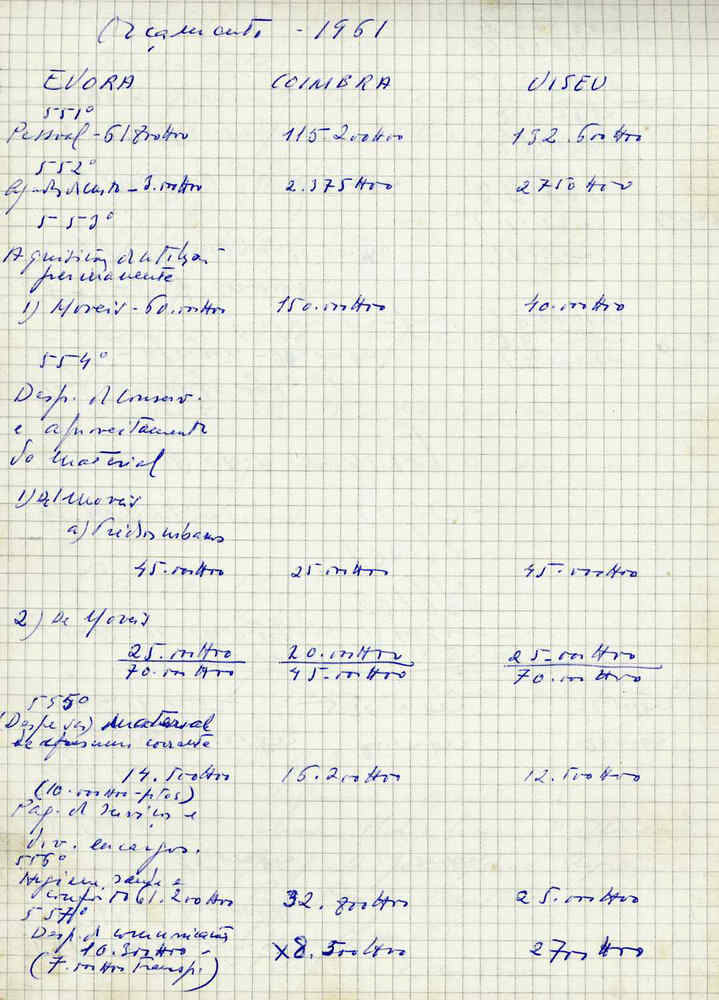 Orçamento - 1961
EVORA COIMBRA VISEU
551º
Pessoal - 61.800$00 115.200$00 132.600$00
552º
Aj. de custo - 3.000$00 2.375$00 2750$00
553º
Aquisição de utilização
permanente
1) Moveis - 60.000$00 150.000$00 40.000$00
554º
Desp. de Conserv.
e aproveitamento
do material
1) De Imoveis
a) Predios urbanos
45.000$00 25.000$00 45.000$00
2) De Moveis
25.000$00 20.000$00 25.000$00
70.000$00 45.000$00 70.000$00
555º
(Despesas) Material
de consumo corrente
14.500$00 16.200$00 12.500$00
(10.000$00
Pag. de serviços e
div. encargos.
556º
Higiene, saude e
conforto 61.200$00 32.800$00 25.000$00
557º
Desp. de comunicações
10.300$00 8.500$00 2700$00
(7.000$00 transp.)